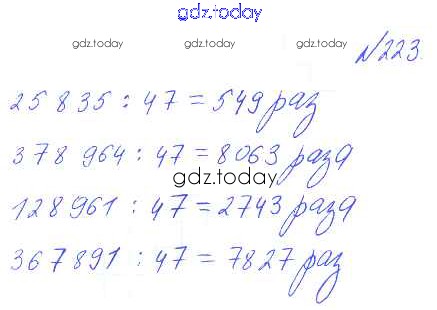 gdz.today
gdz.today gdz.today gdz.today
№223.
25 835 : 47 = 549 раз
378 964 : 47 = 8063 раза
gdz.today
128 961 : 47 = 2743 раза
367 891 : 47 = 7827 раз